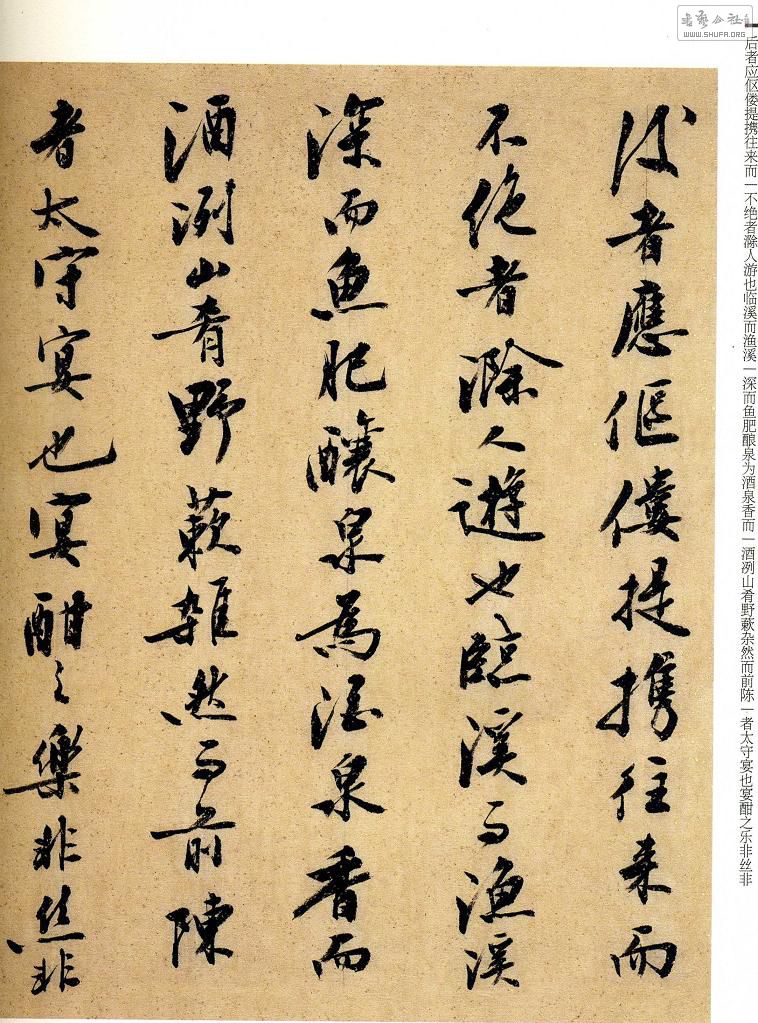 後者應傴僂提攜往来而
不絶者滁人遊也臨溪而漁溪
深而魚肥釀泉為酒泉香而
酒冽山肴野蔌雜然而前陳
者太守宴也宴酣之樂非絲非
后者应伛偻提携往来而一不绝者滁人游也临溪而渔溪一深而鱼肥酿泉为酒泉香而一酒冽山肴野蔌杂然而前陈一者太守宴也宴酣之乐非丝非
WWW.SHUFA.ORG